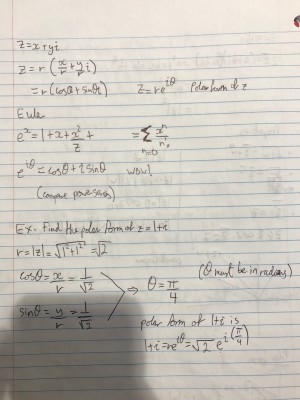 z=x+yi
z=r(x/r+y/r i)
=r(cosθ+sinθi) z=re^{iθ} polar form of z
Euler
e^x=1+x+x²/2+ =∑_{n=0} x^n/n!
e^{iθ}=cosθ+i sinθ wow!
(compare power series)
Ex- Find the polar form of z=1+i
r=|z|=√(1²+1²)=√2
cosθ=x/r=1/√2
sinθ=y/r=1/√2
θ=π/4 (θ must be in radians)
polar form of 1+i is
1+i=re^{iθ}=√2 e^{i(π/4)}